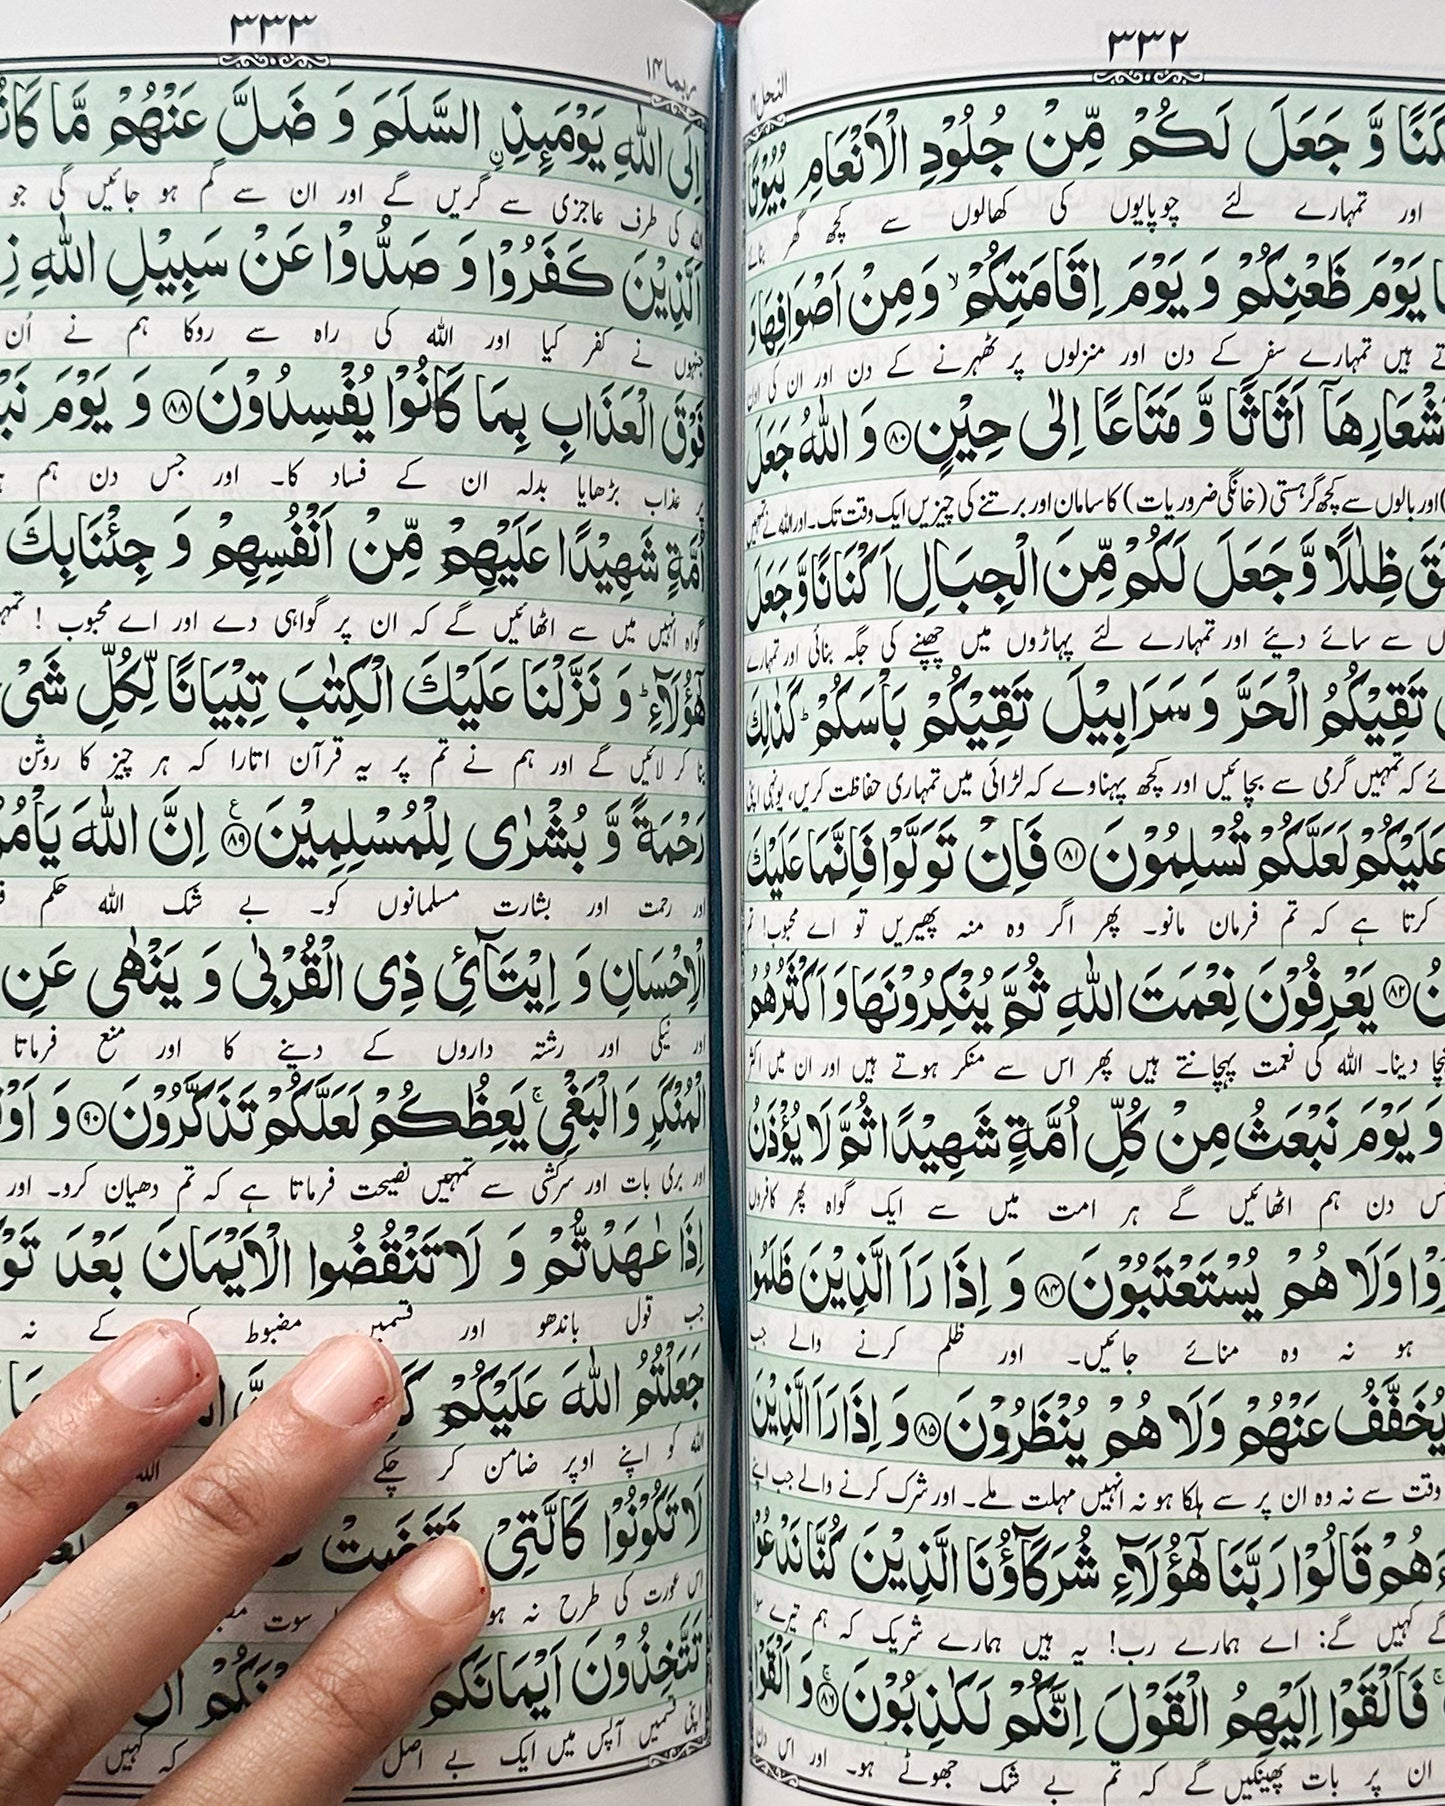 ٣٣٢
النحل
كَنًا وَّ جَعَلَ لَكُمْ مِّنْ جُلُوْدِ الْاَنْعَامِ بُيُوْتًا
اور تمہارے لئے چوپایوں کی کھالوں سے کچھ گھر بنائے
يَوْمَ ظَعْنِكُمْ وَ يَوْمَ اِقَامَتِكُمْ ۙ وَ مِنْ اَصْوَافِهَا وَ
ہیں تمہارے سفر کے دن اور منزلوں پر ٹھہرنے کے دن اور ان کی اون
شْعَارِهَاۤ اَثَاثًا وَّ مَتَاعًا اِلٰى حِيْنٍ ﴿٨٠﴾ وَ اللّٰهُ جَعَلَ
اور بالوں سے کچھ گرہستی (خانگی ضروریات) کا سامان اور برتنے کی چیزیں ایک وقت تک۔ اور اللہ نے تمہیں
قَ ظِلٰلًا وَّ جَعَلَ لَكُمْ مِّنَ الْجِبَالِ اَكْنَانًا وَّ جَعَلَ
سے سائے دیئے اور تمہارے لئے پہاڑوں میں چھپنے کی جگہ بنائی اور تمہارے
تَقِيْكُمُ الْحَرَّ وَ سَرَابِيْلَ تَقِيْكُمْ بَاْسَكُمْ ؕ كَذٰلِكَ
کہ تمہیں گرمی سے بچائیں اور کچھ پہناوے کہ لڑائی میں تمہاری حفاظت کریں، یونہی اپنی
عَلَيْكُمْ لَعَلَّكُمْ تُسْلِمُوْنَ ﴿٨١﴾ فَاِنْ تَوَلَّوْا فَاِنَّمَا عَلَيْكَ
کرتا ہے کہ تم فرمان مانو۔ پھر اگر وہ منہ پھیریں تو اے محبوب! تم
نُ ﴿٨٢﴾ يَعْرِفُوْنَ نِعْمَتَ اللّٰهِ ثُمَّ يُنْكِرُوْنَهَا وَ اَكْثَرُهُمُ
دینا۔ اللہ کی نعمت پہچانتے ہیں پھر اس سے منکر ہوتے ہیں اور ان میں اکثر
وَ يَوْمَ نَبْعَثُ مِنْ كُلِّ اُمَّةٍ شَهِيْدًا ثُمَّ لَا يُؤْذَنُ
دن ہم اٹھائیں گے ہر امت میں سے ایک گواہ پھر کافروں
رُوْا وَلَا هُمْ يُسْتَعْتَبُوْنَ ﴿٨٤﴾ وَ اِذَا رَاَ الَّذِيْنَ ظَلَمُوا
ہو نہ وہ منائے جائیں۔ اور ظلم کرنے والے جب
يُخَفَّفُ عَنْهُمْ وَلَا هُمْ يُنْظَرُوْنَ ﴿٨٥﴾ وَ اِذَا رَاَ الَّذِيْنَ
وقت سے نہ وہ ان پر سے ہلکا ہو نہ انہیں مہلت ملے۔ اور شرک کرنے والے جب اپنے
ءَهُمْ قَالُوْا رَبَّنَا هٰۤؤُلَآءِ شُرَكَآؤُنَا الَّذِيْنَ كُنَّا نَدْعُوْا
گے کہیں گے: اے ہمارے رب! یہ ہیں ہمارے شریک کہ ہم تیرے
فَاَلْقَوْا اِلَيْهِمُ الْقَوْلَ اِنَّكُمْ لَكٰذِبُوْنَ ﴿٨٦﴾ وَ اَلْقَوْا
ان پر بات پھینکیں گے کہ تم بے شک جھوٹے ہو۔ اور اس دن
٣٣٣
ربما ١٤
اِلَى اللّٰهِ يَوْمَئِذِ ِۨ السَّلَمَ وَ ضَلَّ عَنْهُمْ مَّا كَانُ
اللہ کی طرف عاجزی سے گریں گے اور ان سے گم ہو جائیں گی جو
اَلَّذِيْنَ كَفَرُوْا وَ صَدُّوْا عَنْ سَبِيْلِ اللّٰهِ زِ
جنہوں نے کفر کیا اور اللہ کی راہ سے روکا ہم نے اُن
فَوْقَ الْعَذَابِ بِمَا كَانُوْا يُفْسِدُوْنَ ﴿٨٨﴾ وَ يَوْمَ نَبْ
پر عذاب بڑھایا بدلہ ان کے فساد کا۔ اور جس دن ہم
اُمَّةٍ شَهِيْدًا عَلَيْهِمْ مِّنْ اَنْفُسِهِمْ وَ جِئْنَا بِكَ
گواہ انہیں میں سے اٹھائیں گے کہ ان پر گواہی دے اور اے محبوب !
هٰۤؤُلَآءِ ؕ وَ نَزَّلْنَا عَلَيْكَ الْكِتٰبَ تِبْيَانًا لِّكُلِّ شَيْ
بنا کر لائیں گے اور ہم نے تم پر یہ قرآن اتارا کہ ہر چیز کا روشن
رَحْمَةً وَّ بُشْرٰى لِلْمُسْلِمِيْنَ ﴿٨٩﴾ اِنَّ اللّٰهَ يَاْمُرُ
اور رحمت اور بشارت مسلمانوں کو۔ بے شک اللہ حکم
الْاِحْسَانِ وَ اِيْتَآئِ ذِي الْقُرْبٰى وَ يَنْهٰى عَنِ
اور نیکی اور رشتہ داروں کے دینے کا اور منع فرماتا
الْمُنْكَرِ وَ الْبَغْيِ ۚ يَعِظُكُمْ لَعَلَّكُمْ تَذَكَّرُوْنَ ﴿٩٠﴾ وَ اَوْ
اور بری بات اور سرکشی سے تمہیں نصیحت فرماتا ہے کہ تم دھیان کرو۔ اور
اِذَا عٰهَدْتُّمْ وَ لَا تَنْقُضُوا الْاَيْمَانَ بَعْدَ تَوْ
جب قول باندھو اور قسمیں مضبوط کے نہ
جَعَلْتُمُ اللّٰهَ عَلَيْكُمْ
اللہ کو اپنے اوپر ضامن کر چکے اللہ
لَا تَكُوْنُوْا كَالَّتِيْ نَقَضَتْ
اس عورت کی طرح نہ ہو سوت
تَتَّخِذُوْنَ اَيْمَانَكُمْ نَكُمْ اَنْ
اپنی قسمیں آپس میں ایک بے اصل کہ کہیں